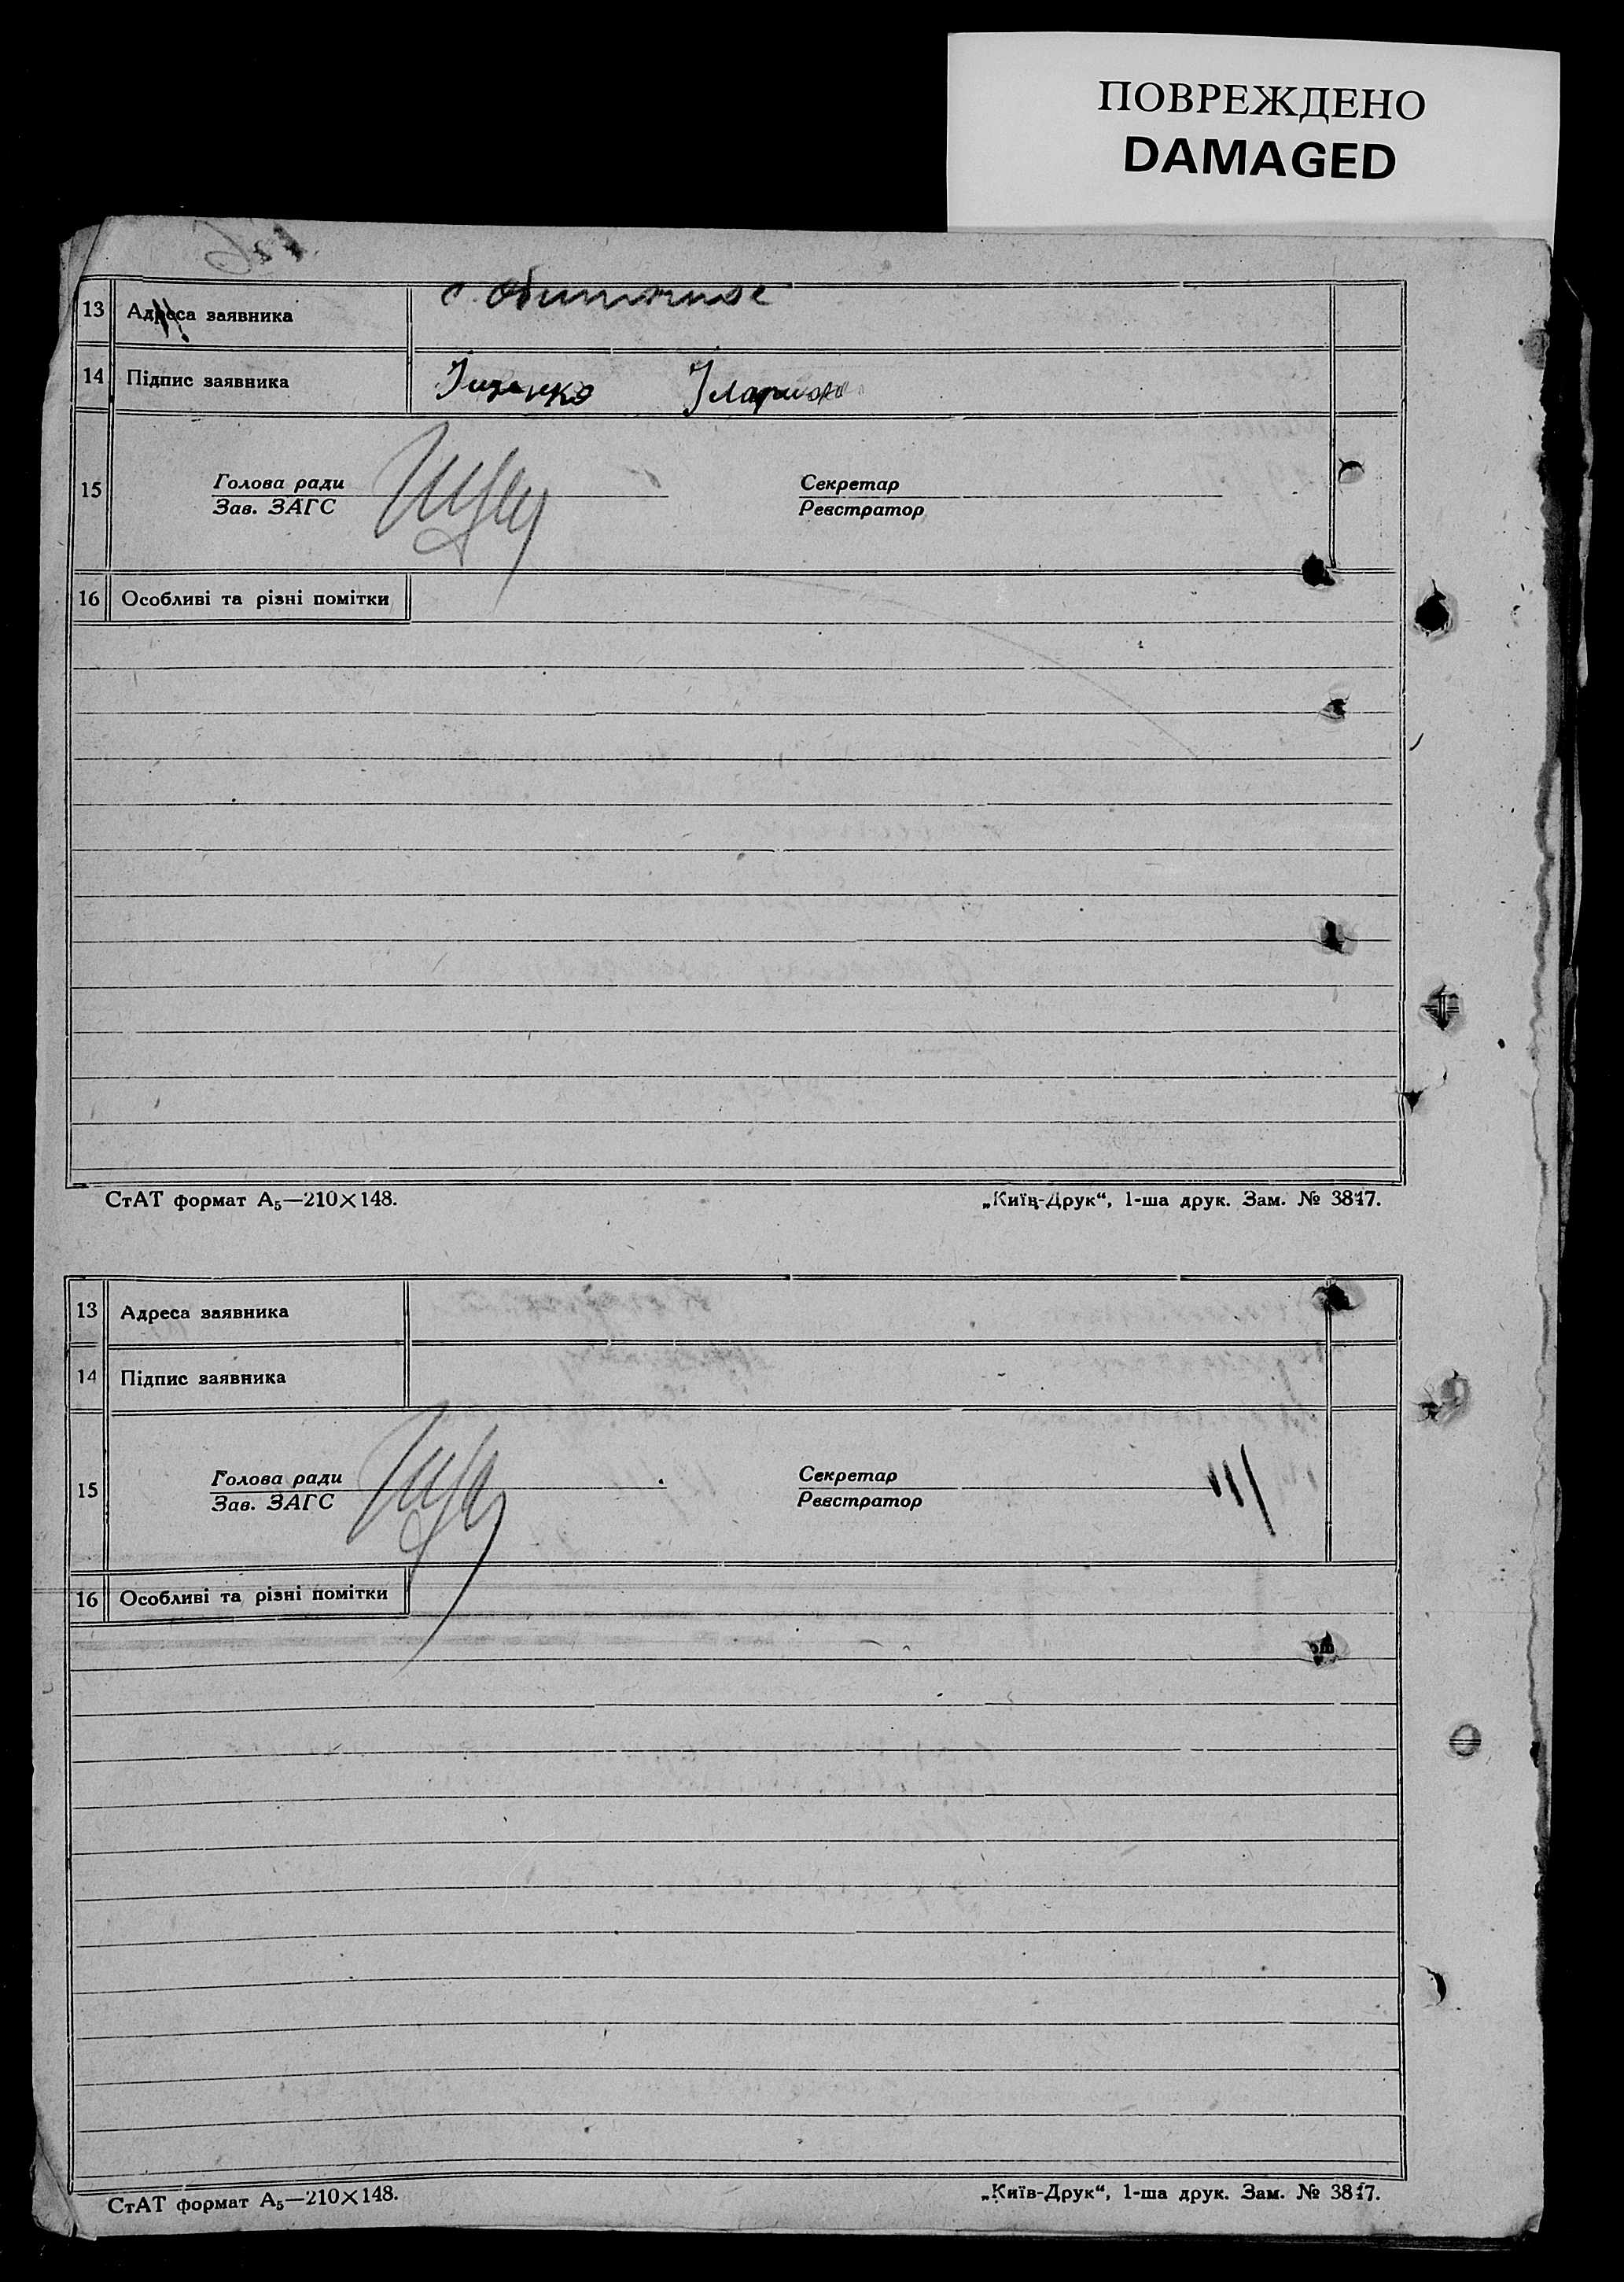 ПОВРЕЖДЕНО
DAMAGED
13 Адреса заявника с.
14 Підпис заявника Іщенко Іларион
15 Голова ради Секретар
Зав. ЗАГС Реєстратор
16 Особливі та різні помітки
СтАТ формат А₅—210×148. „Київ-Друк“, 1-ша друк. Зам. № 3847.
13 Адреса заявника
14 Підпис заявника
15 Голова ради Секретар
Зав. ЗАГС Реєстратор
16 Особливі та різні помітки
СтАТ формат А₅—210×148. „Київ-Друк“, 1-ша друк. Зам. № 3847.